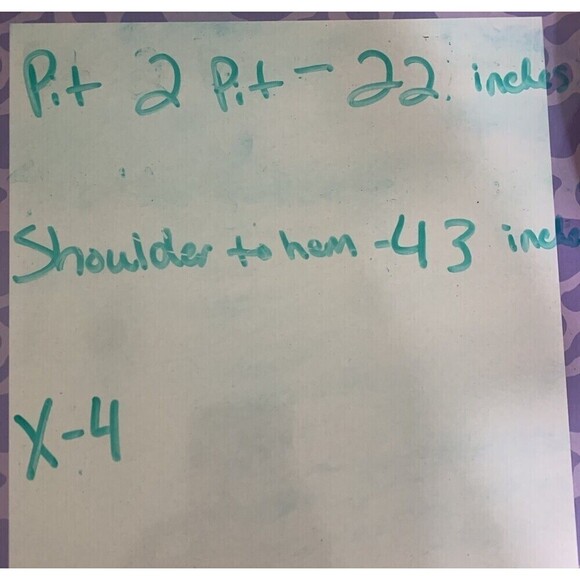 Pit 2 Pit - 22 inches
Shoulder to hem - 43 inches
X-4